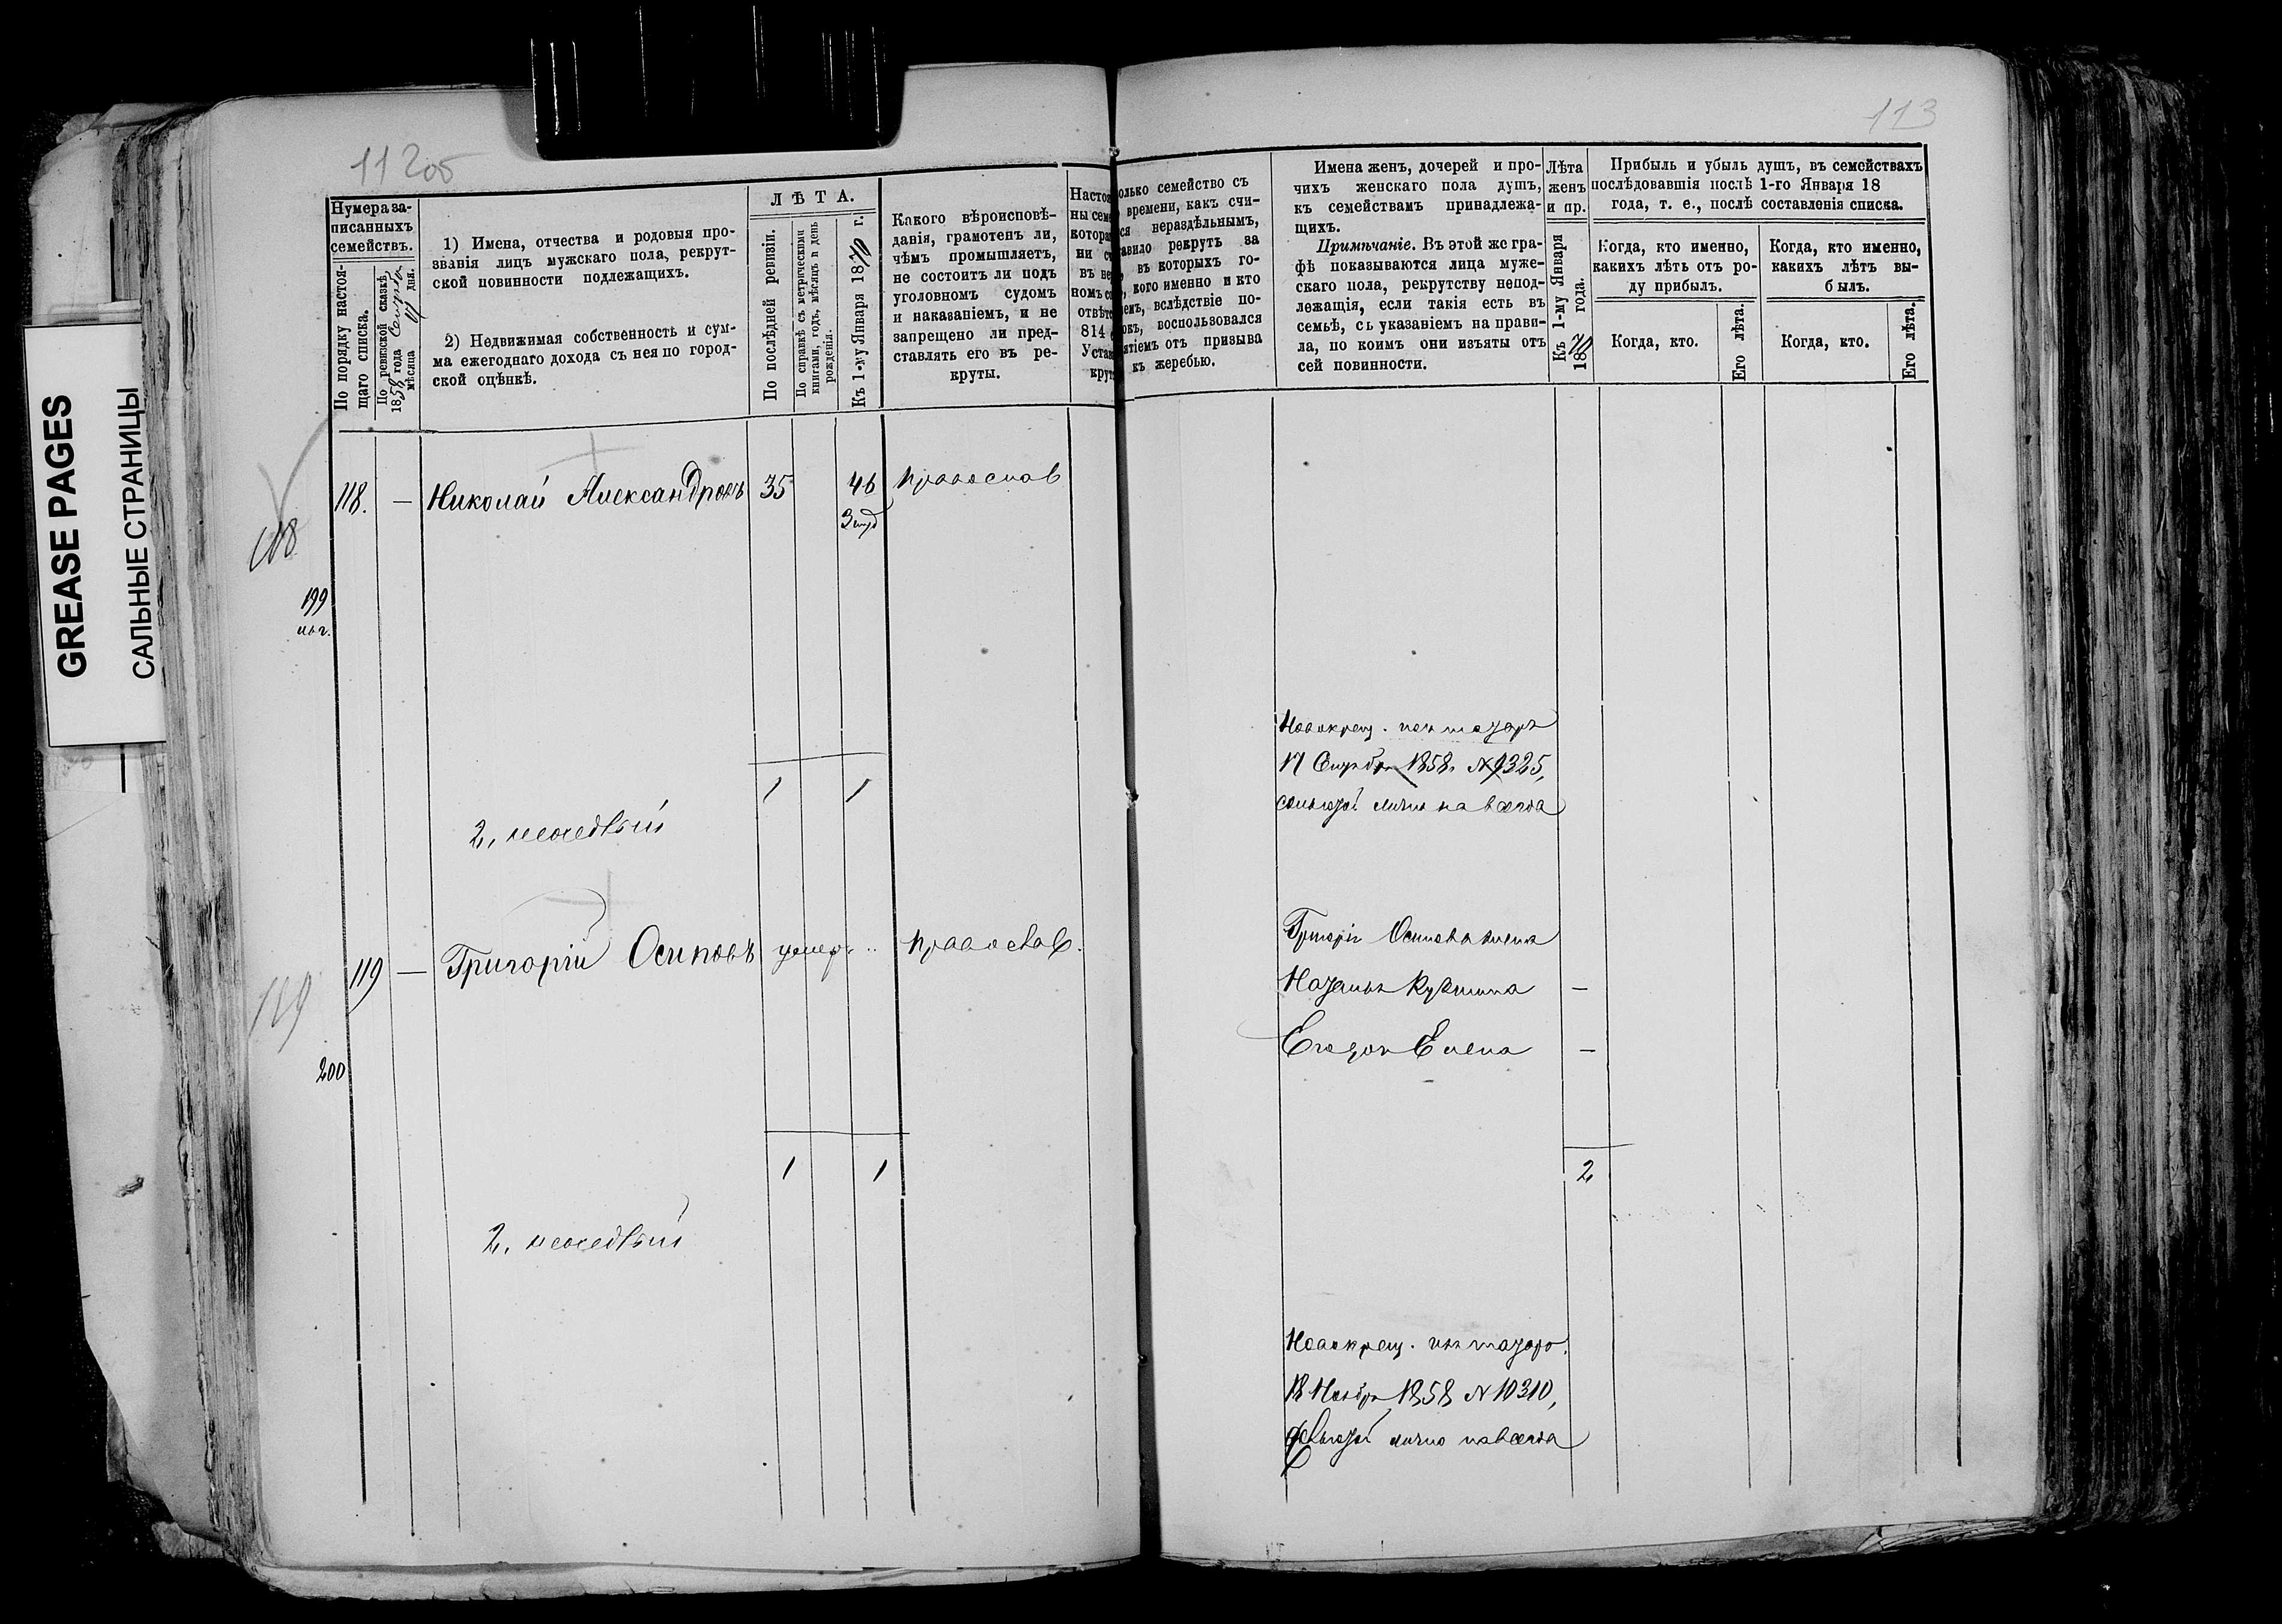 GREASE PAGES
САЛЬНЫЕ СТРАНИЦЫ
112об
113
Нумера за-
писанныхъ
семействъ.
По порядку настоя-
щаго списка.
По ревизской сказкѣ
1858 года
мѣсяца дня.
1) Имена, отчества и родовыя про-
званія лицъ мужскаго пола, рекрут-
ской повинности подлежащихъ.
2) Недвижимая собственность и сум-
ма ежегоднаго дохода съ нея по город-
ской оцѣнкѣ.
ЛѢТА.
По послѣдней ревизіи.
По справкѣ съ метрическими
книгами, годъ, мѣсяцъ и день
рожденія.
Къ 1-му Января 1870 г.
Какого вѣроисповѣ-
данія, грамотенъ ли,
чѣмъ промышляетъ,
не состоитъ ли подъ
уголовномъ судомъ
и наказаніемъ, и не
запрещено ли пред-
ставлять его въ ре-
круты.
Насто
ны сем
котора
ни с
въ не
номъ с
отвѣт
814
Уста
крут
олько семейство съ
времени, какъ счи-
ся нераздѣльнымъ,
авило рекрутъ за
въ которыхъ го-
кого именно и кто
емъ, вслѣдствіе по-
окъ, воспользовался
ятіемъ отъ призыва
къ жеребью.
Имена женъ, дочерей и про-
чихъ женскаго пола душъ,
къ семействамъ принадлежа-
щихъ.
Примѣчаніе. Въ этой же гра-
фѣ показываются лица муже-
скаго пола, рекрутству непод-
лежащія, если такія есть въ
семьѣ, съ указаніемъ на прави-
ла, по коимъ они изъяты отъ
сей повинности.
Лѣта
женъ
и пр.
Къ 1-му Января
1870 года.
Прибыль и убыль душъ, въ семействахъ
послѣдовавшія послѣ 1-го Января 18
года, т. е., послѣ составленія списка.
Когда, кто именно,
какихъ лѣтъ отъ ро-
ду прибылъ.
Когда, кто.
Его лѣта.
Когда, кто именно,
какихъ лѣтъ вы-
былъ.
Когда, кто.
Его лѣта.
118. — Николай Александровъ 35 46 православ
118
199
Новокрещ. изъ татаръ
17 1858 № 9325,
лично навсегда
1 1
2,
119 — Григорій Осиповъ умеръ православ.
119
200
Григорія Осипова жена
Елена —
—
1 1
2
2,
Новокрещ. изъ татаръ.
18 Ноября 1858 № 10310,
лично навсегда